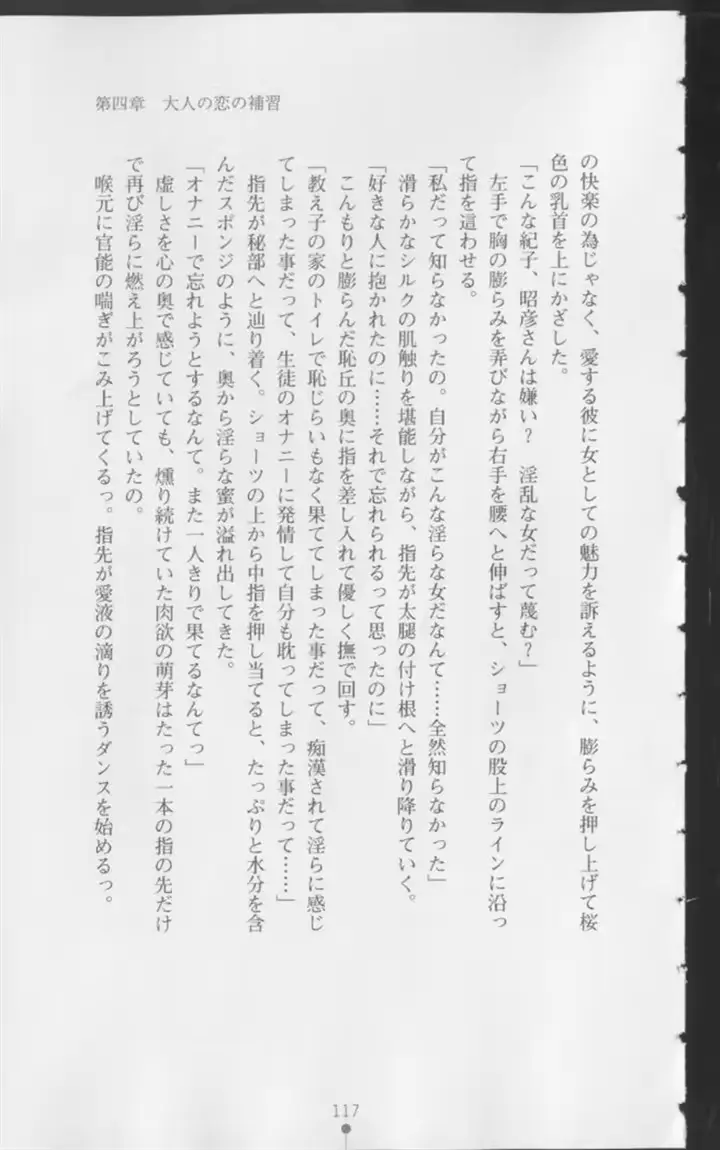 第四章　大人の恋の補習
の快楽の為じゃなく、愛する彼に女としての魅力を訴えるように、膨らみを押し上げて桜
色の乳首を上にかざした。
「こんな紀子、昭彦さんは嫌い？　淫乱な女だって蔑む？」
左手で胸の膨らみを弄びながら右手を腰へと伸ばすと、ショーツの股上のラインに沿っ
て指を這わせる。
「私だって知らなかったの。自分がこんな淫らな女だなんて……全然知らなかった」
滑らかなシルクの肌触りを堪能しながら、指先が太腿の付け根へと滑り降りていく。
「好きな人に抱かれたのに……それで忘れられるって思ったのに」
こんもりと膨らんだ恥丘の奥に指を差し入れて優しく撫で回す。
「教え子の家のトイレで恥じらいもなく果ててしまった事だって、痴漢されて淫らに感じ
てしまった事だって、生徒のオナニーに発情して自分も耽ってしまった事だって……」
指先が秘部へと辿り着く。ショーツの上から中指を押し当てると、たっぷりと水分を含
んだスポンジのように、奥から淫らな蜜が溢れ出してきた。
「オナニーで忘れようとするなんて。また一人きりで果てるなんてっ」
虚しさを心の奥で感じていても、燻り続けていた肉欲の萌芽はたった一本の指の先だけ
で再び淫らに燃え上がろうとしていたの。
喉元に官能の喘ぎがこみ上げてくるっ。指先が愛液の滴りを誘うダンスを始めるっ。
117